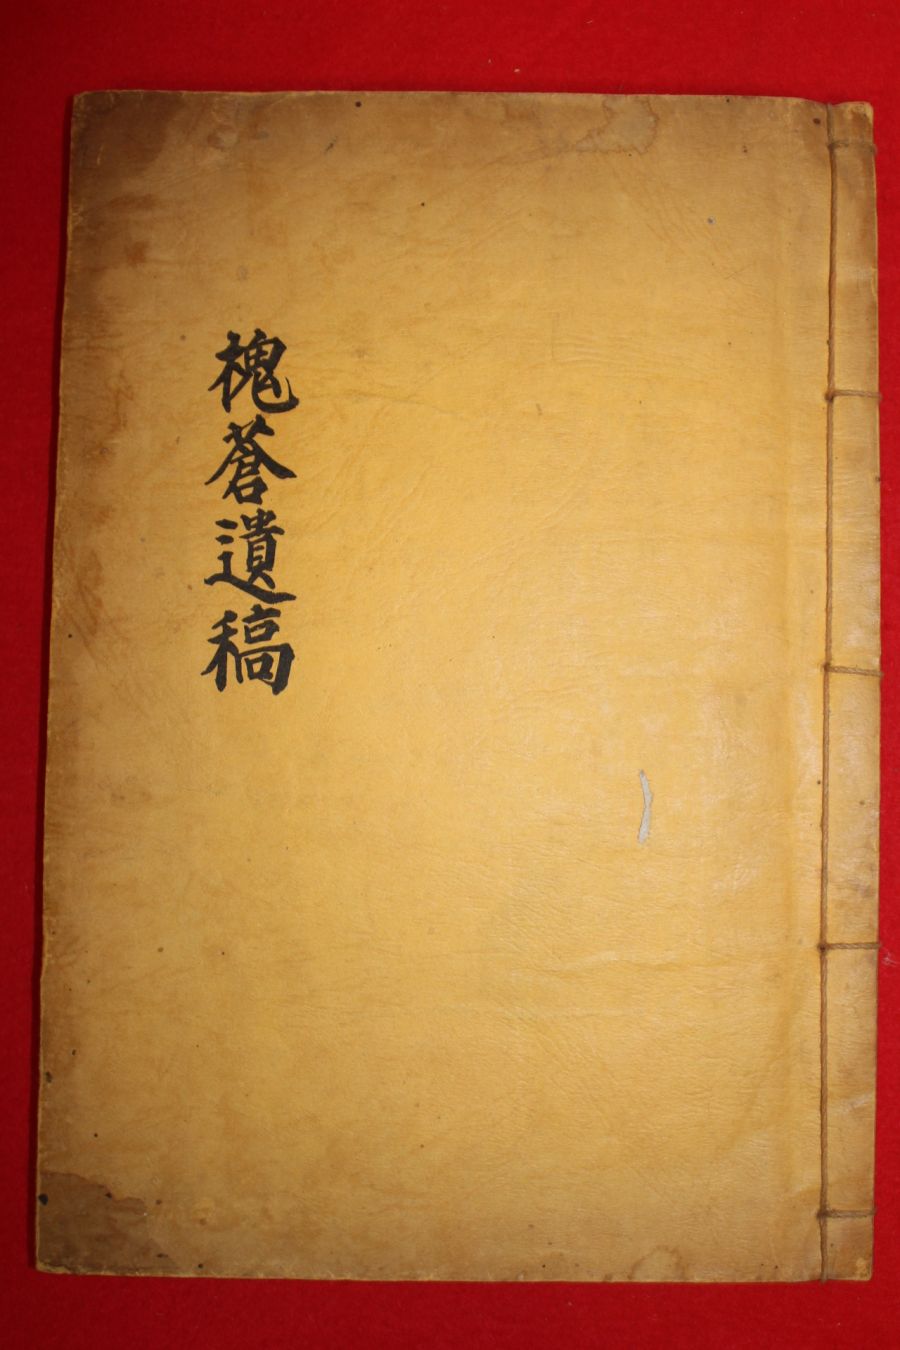 槐蒼遺稿